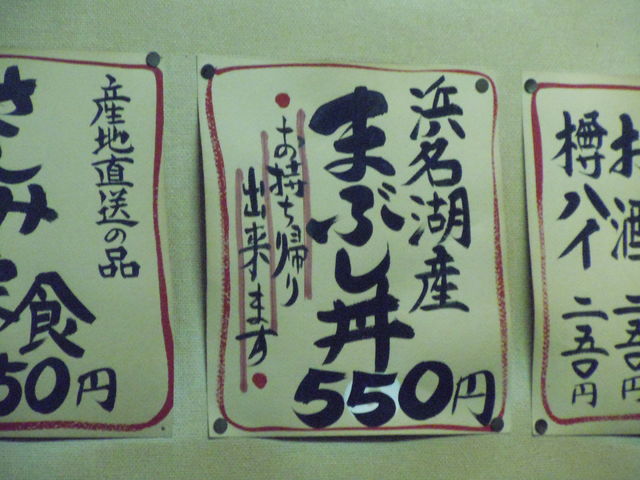 産地直送の品
さしみ定食
50円
浜名湖産
まぶし丼
550円
お持ち帰り
出来ます
酒
二五〇円
樽ハイ
二五〇円